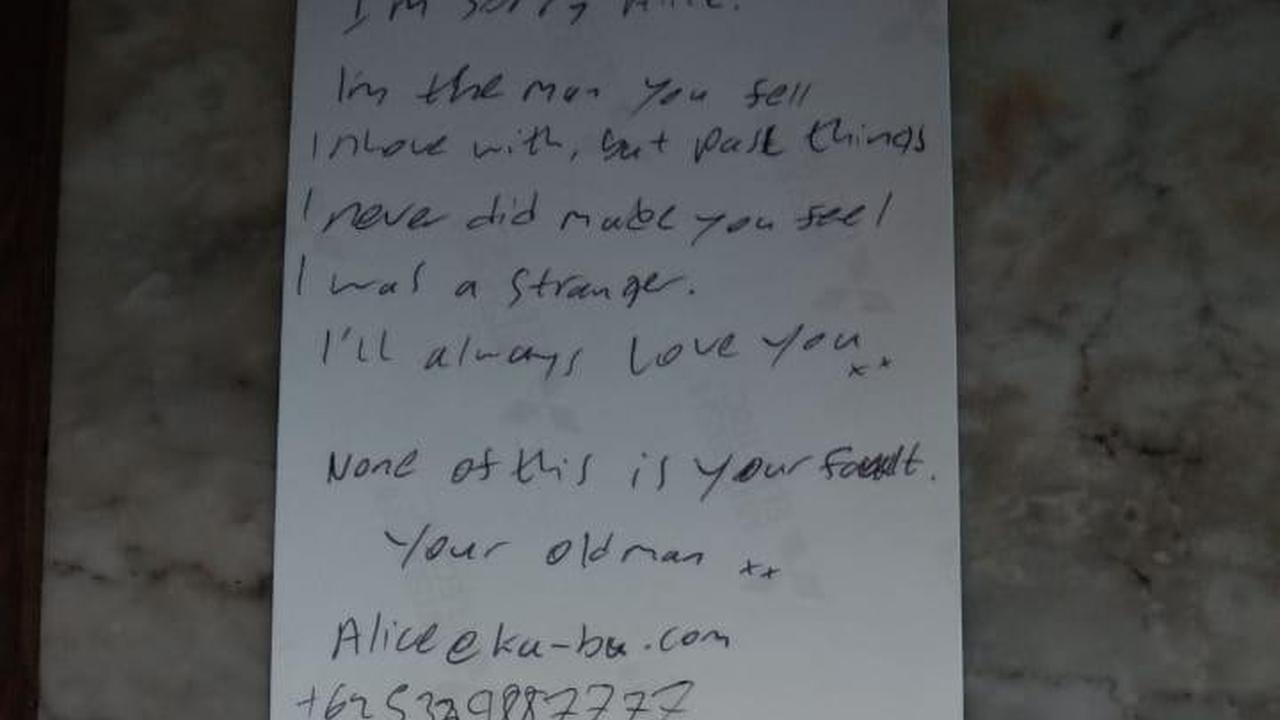 I'm sorry Alice.
I'm the man you fell
In love with, but past things
I never did made you feel
I was a stranger.
I'll always love you xx
None of this is your fault.
Your old man xx
Alice@ku-bu.com